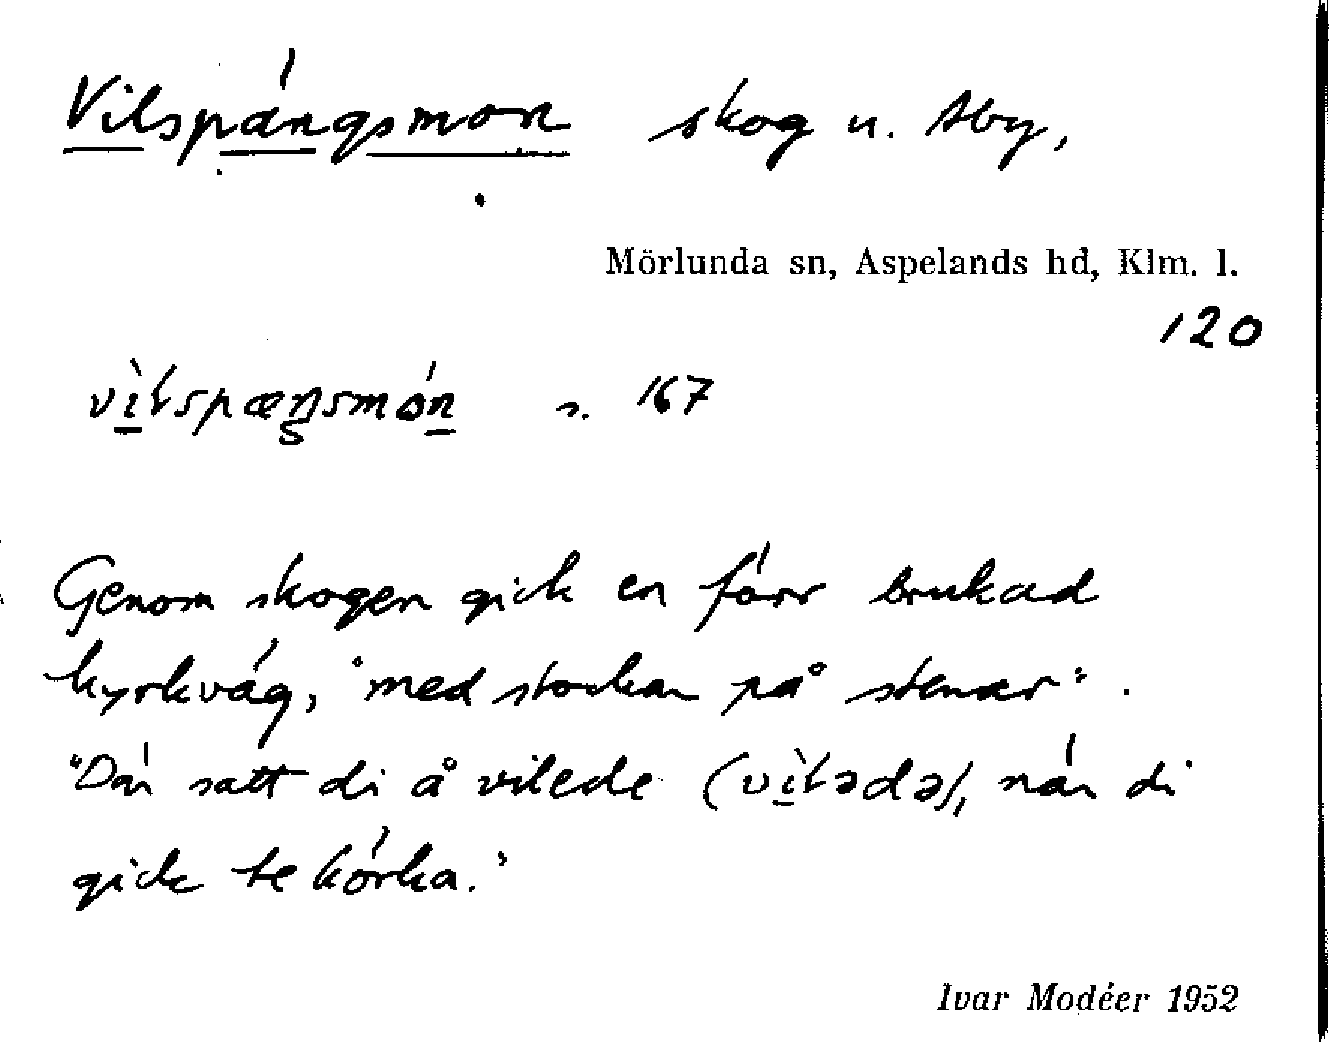 Vilspängsmon skog u. Åby,
Mörlunda sn, Aspelands hd, Klm. l.
120
s. 167
Genom skogen gick en förr brukad
kyrkväg, "med stockar på stenar".
"Där satt di å vilede (vìlədə), när di
gick te körka."
Ivar Modéer 1952